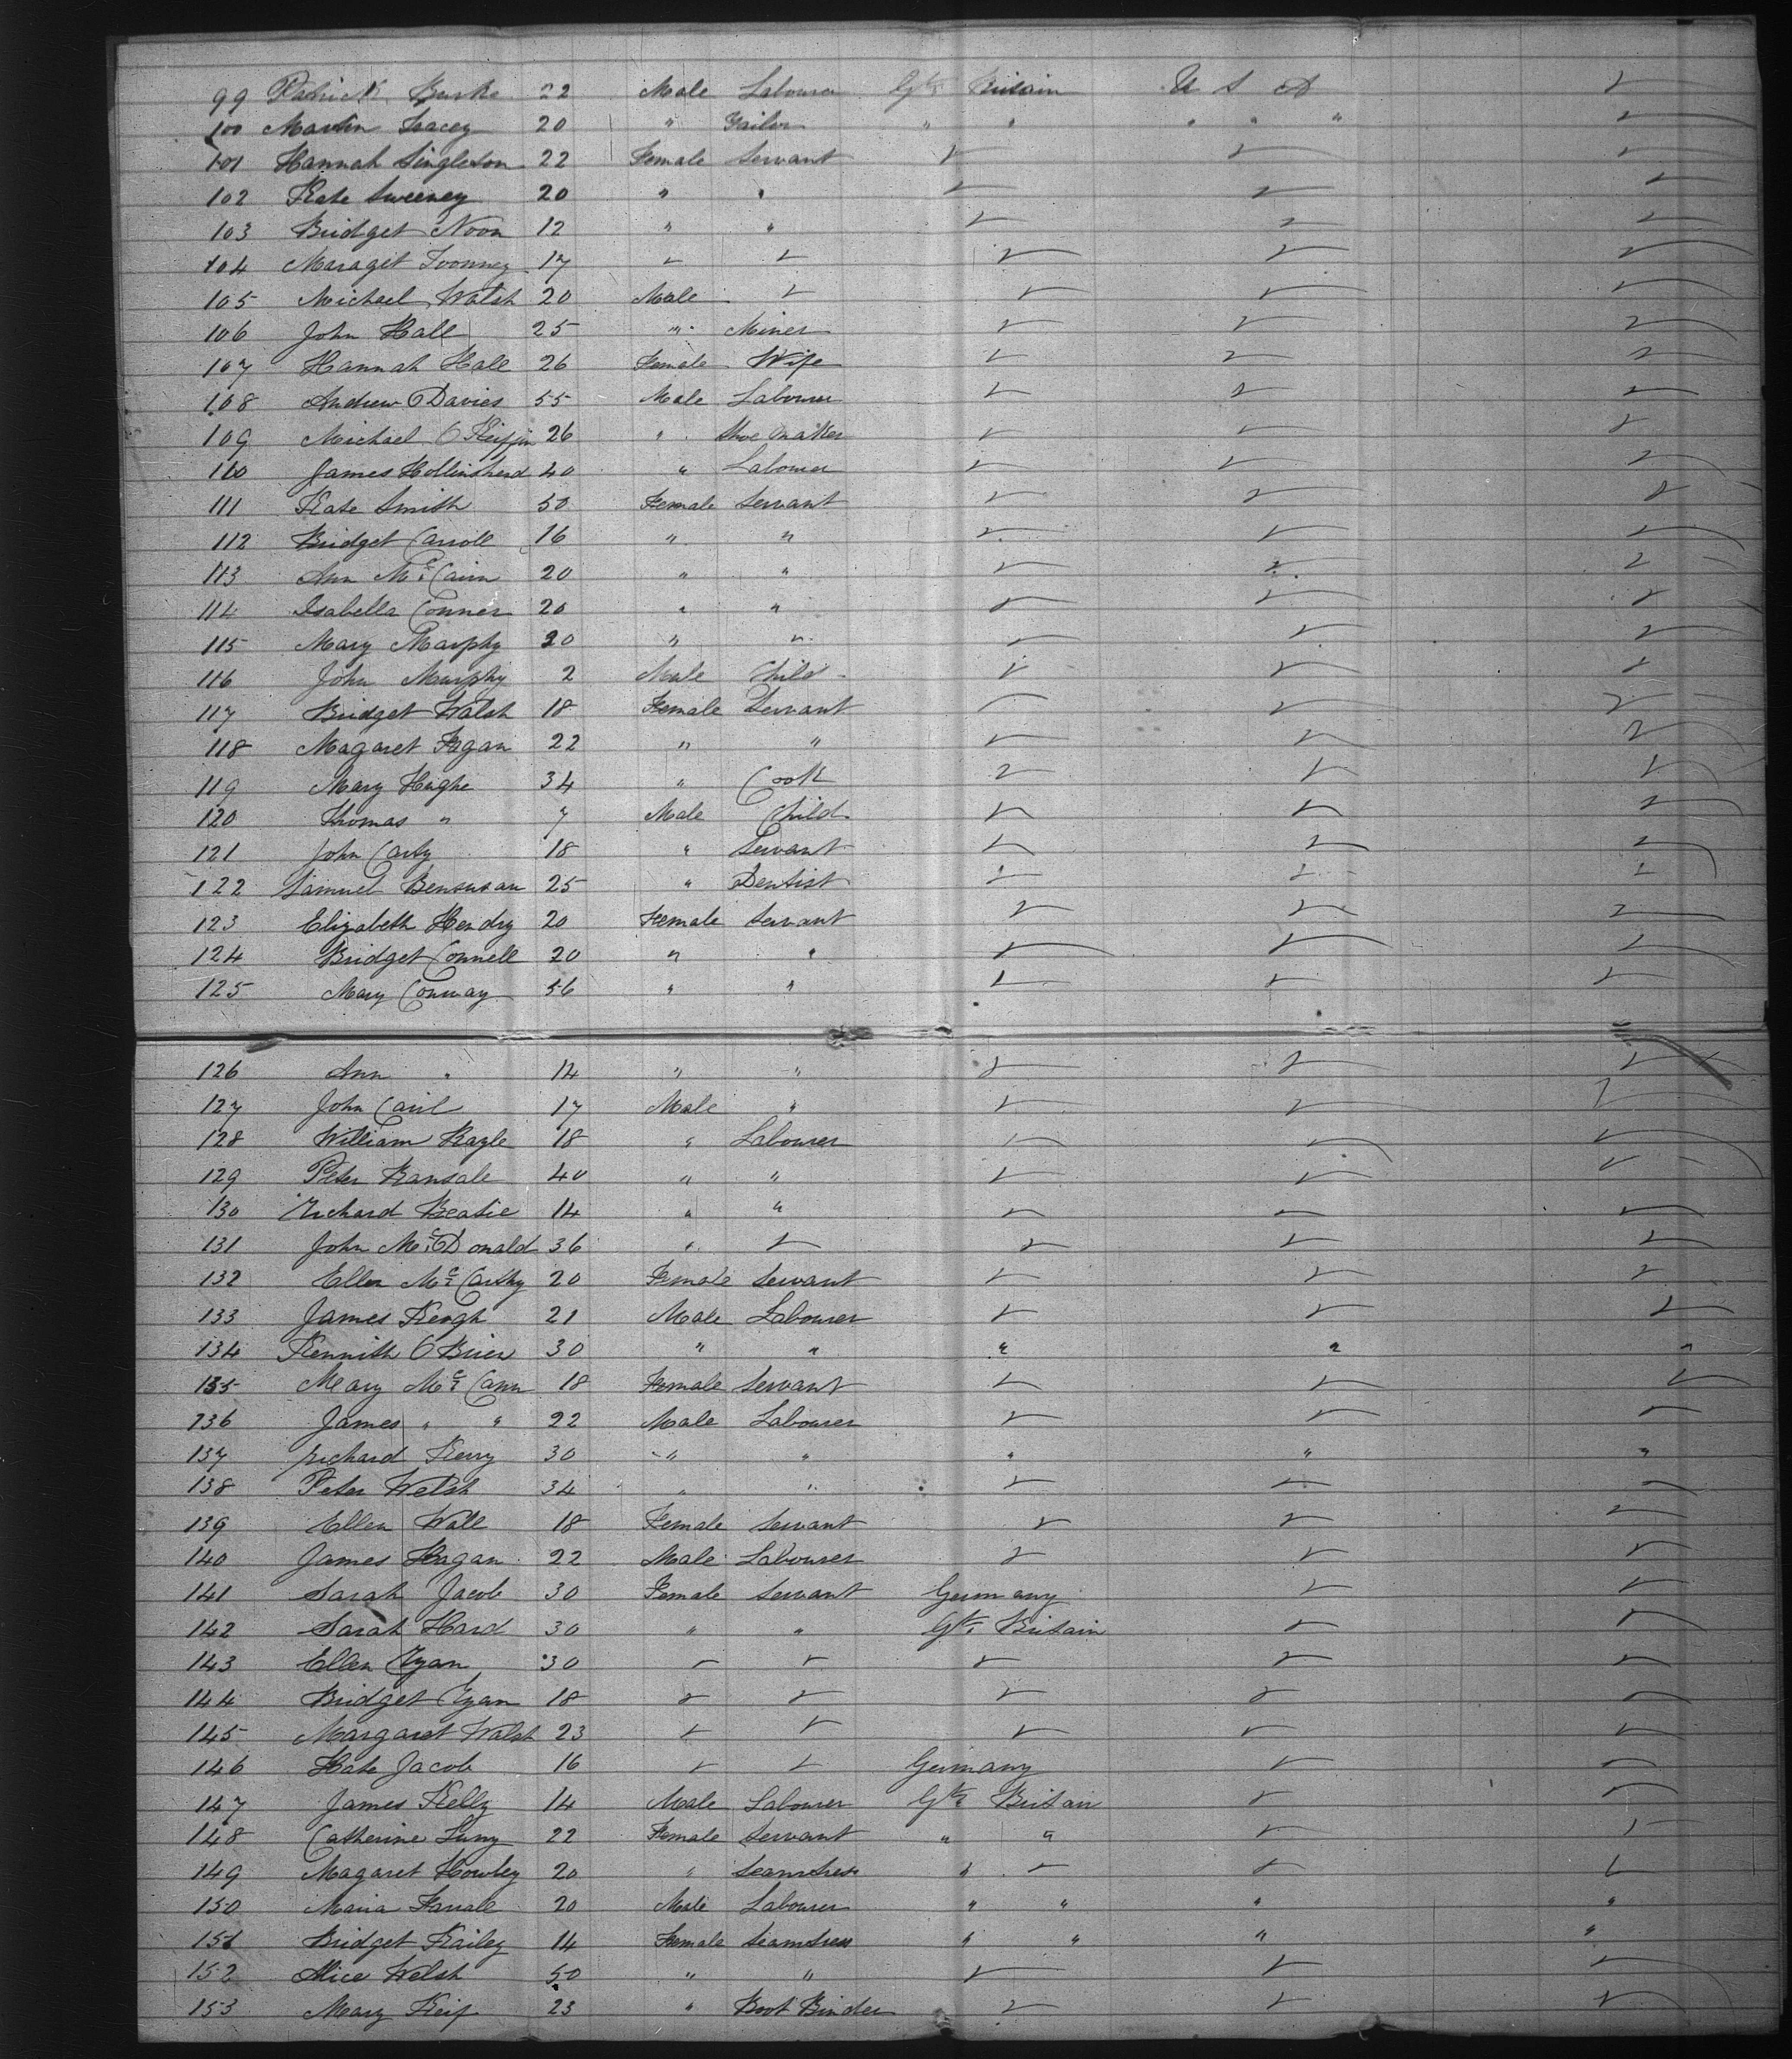 99 Patrick Burke 22 Male Labourer Gt. Britain U S A
100 Martin Lacey 20 " Tailor " " " " "
101 Hannah Singleton 22 Female Servant
102 Kate Sweeney 20 " "
103 Bridget Noon 12 " "
104 Maraget 17
105 Michael Walsh 20 Male
106 John Hall 25 " Miner
107 Hannah Hall 26 Female Wife
108 Andrew Davies 55 Male Labourer
109 Michael O 26 " Shoe maker
110 James Hollinshead 40 " Labourer
111 Kate Smith 50 Female Servant
112 Bridget Carroll 16 " "
113 Ann Mc Cairn 20 " "
114 Isabella Conner 20 " "
115 Mary Murphy 20 " "
116 John Murphy 2 Male Child
117 Bridget Walsh 18 Female Servant
118 Magaret Fagan 22 " "
119 Mary Highe 34 " Cook
120 Thomas " 7 Male Child
121 John Carty 18 " Servant
122 Samuel Bensusan 25 " Dentist
123 Elizabeth Hendry 20 Female Servant
124 Bridget Connell 20 " "
125 Mary Conway 56 " "
126 Ann " 14 " "
127 John Caril 17 Male "
128 William Kagle 18 " Labourer
129 Peter Bansale 40 " "
130 Richard Beatie 14 " "
131 John Mc Donald 36 "
132 Ellen Mc Carthy 20 Female Servant
133 James Keogh 21 Male Labourer
134 Kennith O Brien 30 " " " " "
135 Mary Mc Cann 18 Female Servant
136 James " " 22 Male Labourer
137 Richard Kerry 30 " " " " "
138 Peter Welsh 34 " "
139 Ellen Wall 18 Female Servant
140 James Hagan 22 Male Labourer
141 Sarah Jacob 30 Female Servant Germany
142 Sarah Hard 30 " " Gt. Britain
143 Ellen Ryan 30
144 Bridget Ryan 18
145 Margaret Walsh 23
146 Kate Jacob 16 Germany
147 James Kelly 14 Male Labourer Gt. Britain
148 Catherine Luny 22 Female Servant " "
149 Magaret Howley 20 " Seamstress "
150 Maria Farrale 20 Male Labourer " " " "
151 Bridget Kailey 14 Female Seamstress " " " "
152 Alice Welsh 50 " "
153 Mary Keif 23 " Boot Binder